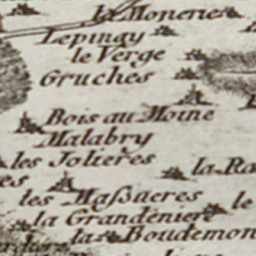 la Monerie
Lepinay
le Verge
Gruches
Bois au Moine
Malabry
les Jolieres
la Ra
es
les Maſsueres
le
la Grandeniere
las Boudemon